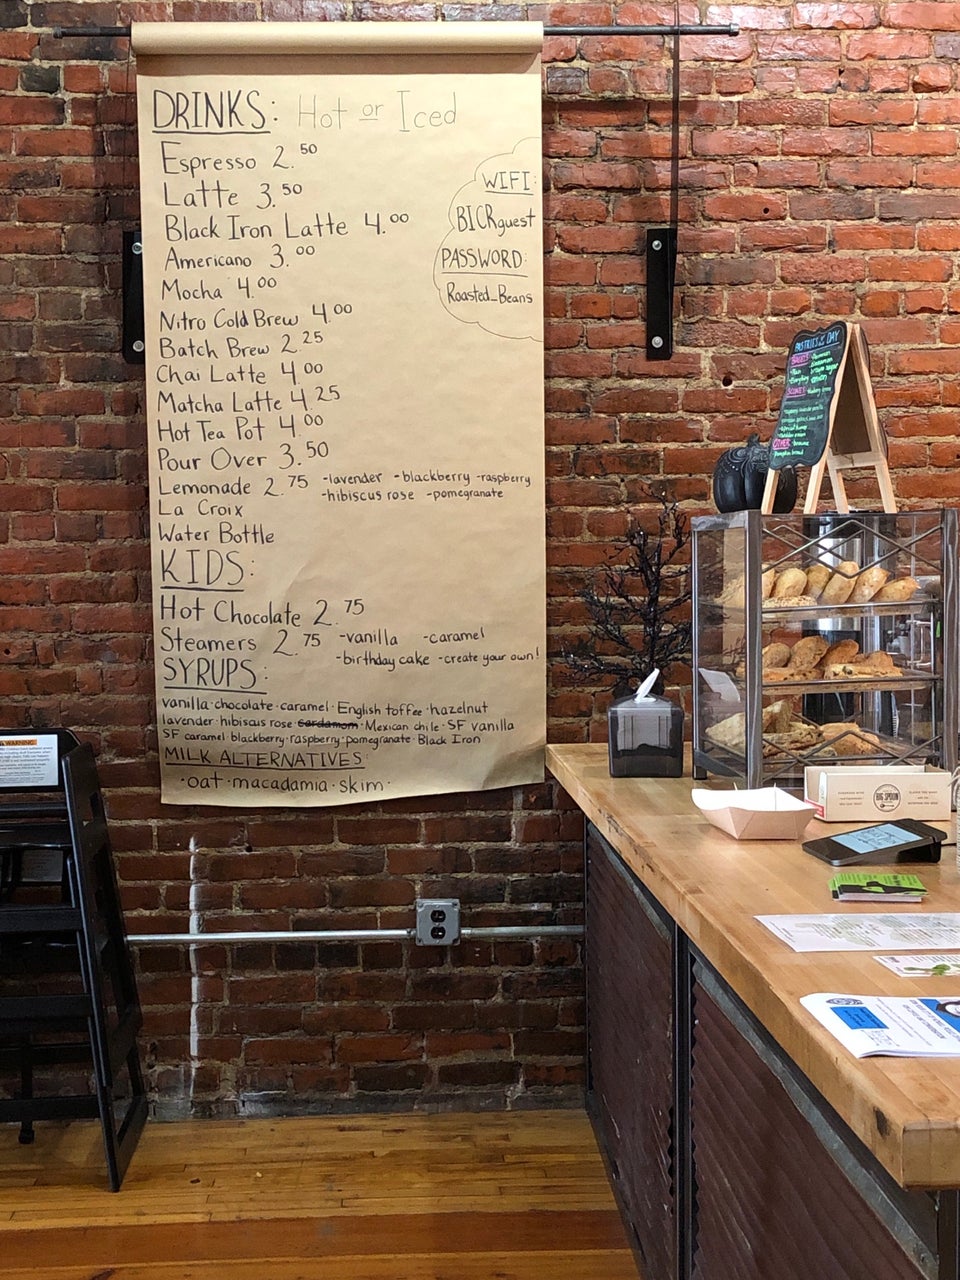 DRINKS: Hot or Iced
Espresso 2.50
Latte 3.50
Black Iron Latte 4.00
Americano 3.00
Mocha 4.00
Nitro Cold Brew 4.00
Batch Brew 2.25
Chai Latte 4.00
Matcha Latte 4.25
Hot Tea Pot 4.00
Pour Over 3.50
Lemonade 2.75 -lavender -blackberry -raspberry
-hibiscus rose -pomegranate
La Croix
Water Bottle
KIDS:
Hot Chocolate 2.75
Steamers 2.75 -vanilla -caramel
-birthday cake -create your own!
SYRUPS:
vanilla·chocolate·caramel·English toffee·hazelnut
lavender·hibiscus rose cardamom·Mexican chile·SF vanilla
SF caramel blackberry·raspberry·pomegranate·Black Iron
MILK ALTERNATIVES
·oat·macadamia·skim·
WIFI:
BICRguest
PASSWORD:
Roasted_Beans
PASTRIES of the DAY
BAGELS
SCONES
OTHER
WARNING
BIG SPOON